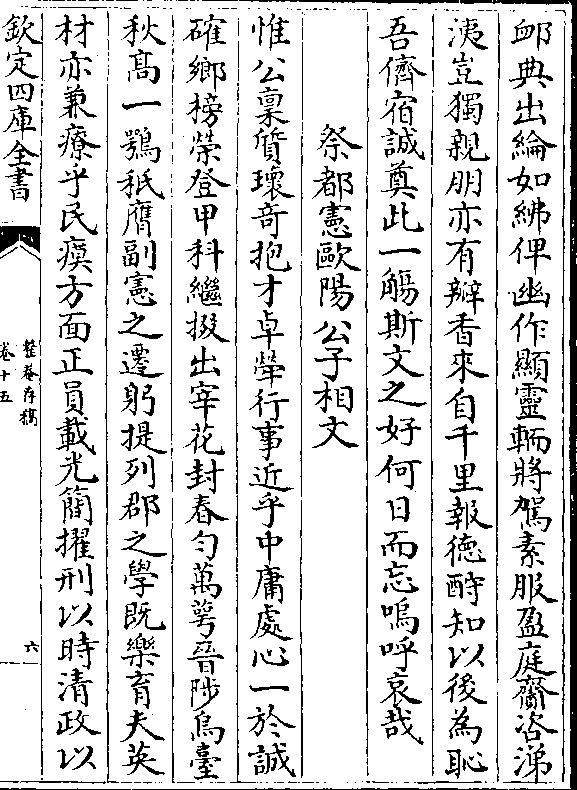 䘏典出綸如紼俾幽作顯靈輀將駕素服盈庭齎咨涕
洟豈獨親朋亦有瓣香來自千里報德酧知以後為恥
吾儕宿誠奠此一觴斯文之好何日而忘嗚呼哀哉
祭都憲歐陽公子相文
惟公稟質瓌竒抱才卓犖行事近乎中庸處心一於誠
確鄉榜榮登甲科繼掇出宰花封春勻萬萼晉陟烏臺
秋髙一鶚秪膺副憲之遷躬提列郡之學既樂育夫英
材亦兼療乎民瘼方面正員載光簡擢刑以時清政以
欽定四庫全書
整菴存稿
卷十五
六